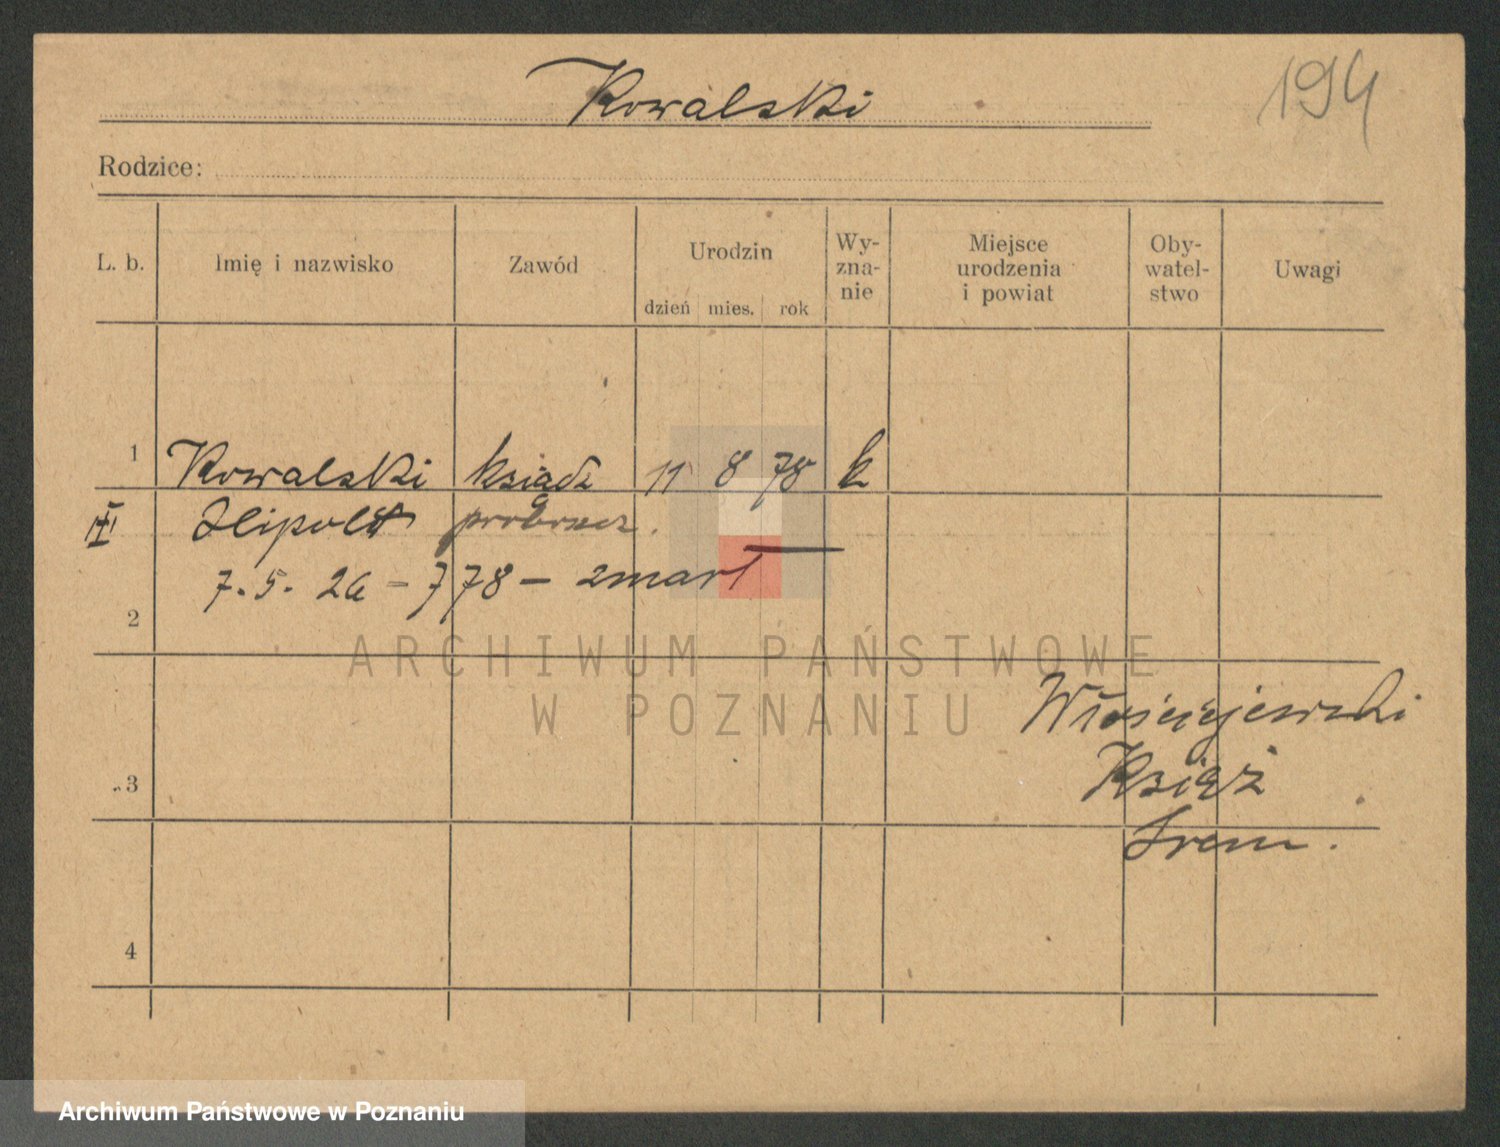 Kowalski
194
Rodzice:
L. b. Imię i nazwisko Zawód Urodzin dzień mies. rok Wy-zna-nie Miejsce urodzenia i powiat Oby-watel-stwo Uwagi
1 Kowalski ksiądz 11 8 78 k
III Hipolit proboszcz.
7. 5. 26 - 778 - zmarł
2
ARCHIWUM PAŃSTWOWE
W POZNANIU
Włościejewski
3 Książ
Srem.
4
Archiwum Państwowe w Poznaniu